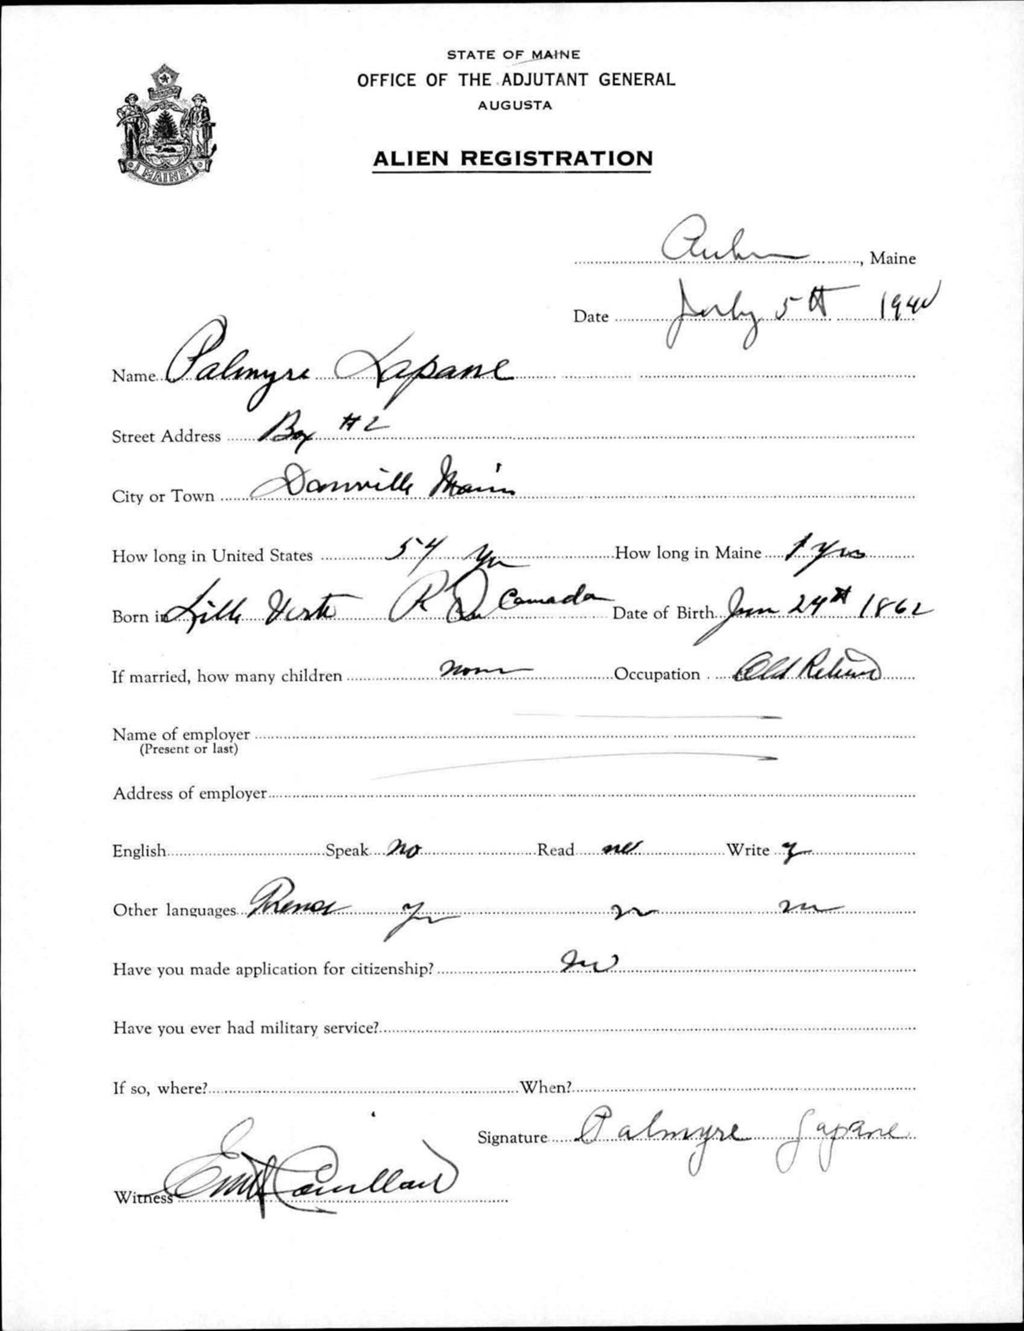 STATE OF MAINE
OFFICE OF THE ADJUTANT GENERAL
AUGUSTA
MAINE
ALIEN REGISTRATION
Auburn, Maine
Date July 5th 1940
Name Palmyre Lapane
Street Address Box #2
City or Town Danville Maine
How long in United States 54 yr How long in Maine 1 yrs
Born in Lille Verte P Q Canada Date of Birth Jun 24th 1862
If married, how many children none Occupation Old Retired
Name of employer
(Present or last)
Address of employer
English Speak No Read no Write
Other languages French
Have you made application for citizenship? no
Have you ever had military service?
If so, where? When?
Signature Palmyre Lapane
Witness